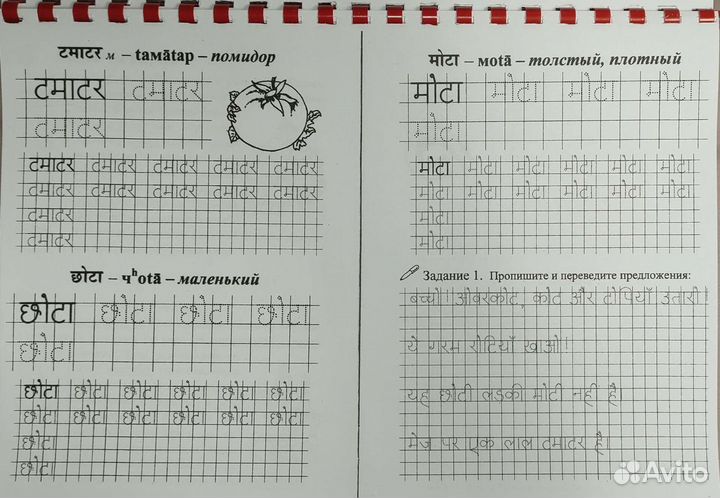 टमाटर м – tамāтар – помидор
टमाटर टमाटर
टमाटर
टमाटर टमाटर टमाटर टमाटर टमाटर
टमाटर टमाटर टमाटर टमाटर टमाटर
टमाटर
टमाटर
छोटा – чʰotā – маленький
छोटा छोटा छोटा छोटा
छोटा
छोटा छोटा छोटा छोटा छोटा छोटा
छोटा छोटा छोटा छोटा छोटा छोटा
छोटा
छोटा
मोटा – мotā – толстый, плотный
मोटा मोटा मोटा मोटा
मोटा
मोटा मोटा मोटा मोटा मोटा मोटा
मोटा मोटा मोटा मोटा मोटा मोटा
मोटा
मोटा
Задание 1. Пропишите и переведите предложения:
बच्चो! ओवरकोट, कोट और टोपियाँ उतारो!
ये गरम रोटियाँ खाओ!
यह छोटी लड़की मोटी नहीं है
मेज़ पर एक लाल टमाटर है।
Avito